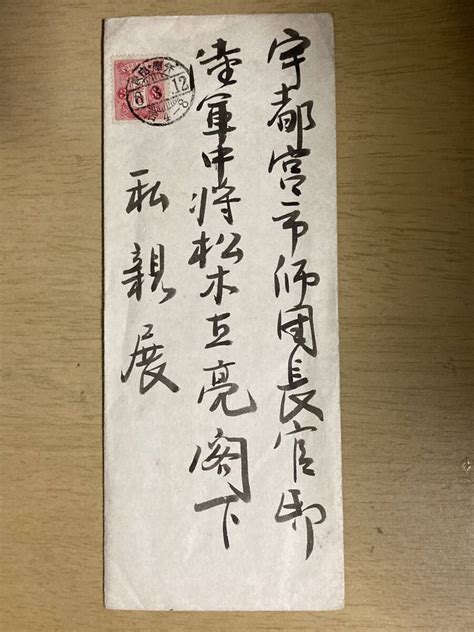 宇都宮市師団長官邸
陸軍中将松木直亮閣下
私親展
6 3 12